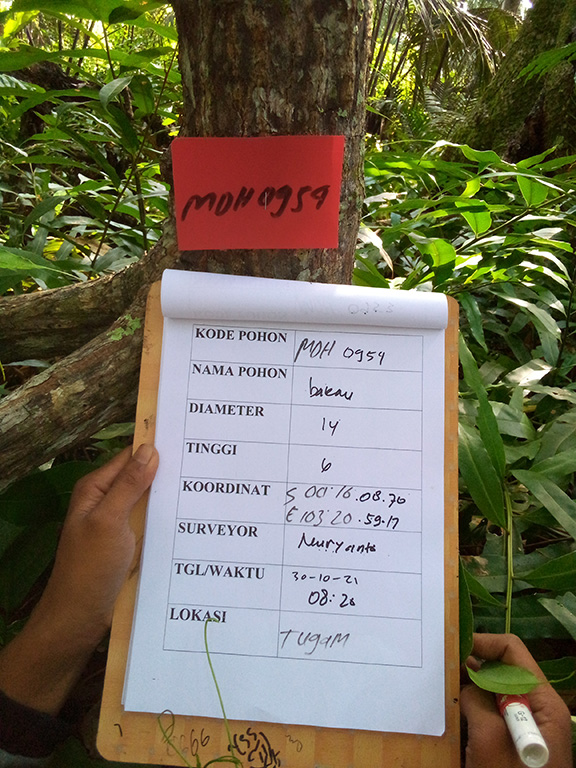 MDH 0959
KODE POHON MDH 0959
NAMA POHON bakau
DIAMETER 14
TINGGI 6
KOORDINAT S 00.16.08.70
E 103.20.59.17
SURVEYOR Nuryanto
TGL/WAKTU 30-10-21
08:20
LOKASI TUGAM